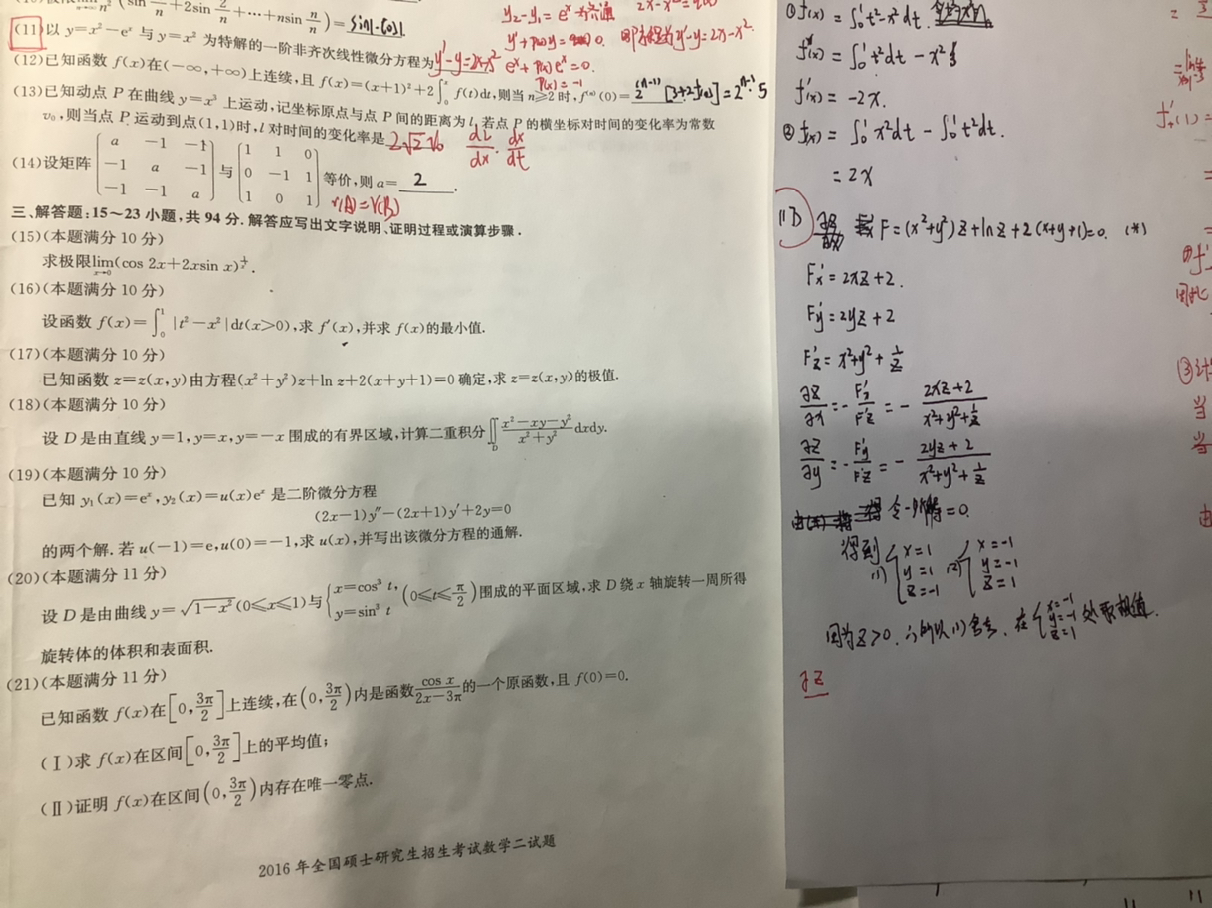 (11)以 y=x²-eˣ 与 y=x² 为特解的一阶非齐次线性微分方程为 y'-y=2x-x²
(12)已知函数 f(x)在(-∞,+∞)上连续,且 f(x)=(x+1)²+2∫₀ˣ f(t)dt,则当 n≥2 时, f⁽ⁿ⁾(0)= 2⁽ⁿ⁻¹⁾[3+2f(0)]=2ⁿ⁻¹·5
(13)已知动点 P 在曲线 y=x³ 上运动,记坐标原点与点 P 间的距离为 l.若点 P 的横坐标对时间的变化率为常数
v₀,则当点 P 运动到点(1,1)时, l 对时间的变化率是 2√2v₀
dl/dx · dx/dt
(14)设矩阵 [a -1 -1; -1 a -1; -1 -1 a] 与 [1 1 0; 0 -1 1; 1 0 1] 等价,则 a= 2 .
r(A)=r(B)
三、解答题:15～23 小题,共 94 分.解答应写出文字说明、证明过程或演算步骤.
(15)(本题满分 10 分)
求极限 lim x→0 (cos 2x+2xsin x)
(16)(本题满分 10 分)
设函数 f(x)=∫₀¹ |t²-x²|dt(x>0),求 f'(x),并求 f(x)的最小值.
(17)(本题满分 10 分)
已知函数 z=z(x,y)由方程(x²+y²)z+ln z+2(x+y+1)=0 确定,求 z=z(x,y)的极值.
(18)(本题满分 10 分)
设 D 是由直线 y=1,y=x,y=-x 围成的有界区域,计算二重积分∬_D (x²-xy-y²)/(x²+y²) dxdy.
(19)(本题满分 10 分)
已知 y₁(x)=eˣ,y₂(x)=u(x)eˣ 是二阶微分方程
(2x-1)y″-(2x+1)y′+2y=0
的两个解.若 u(-1)=e,u(0)=-1,求 u(x),并写出该微分方程的通解.
(20)(本题满分 11 分)
设 D 是由曲线 y=√(1-x²)(0≤x≤1)与 {x=cos³ t, y=sin³ t (0≤t≤π/2) 围成的平面区域,求 D 绕 x 轴旋转一周所得
旋转体的体积和表面积.
(21)(本题满分 11 分)
已知函数 f(x)在[0,3π/2]上连续,在(0,3π/2)内是函数 cos x/(2x-3π) 的一个原函数,且 f(0)=0.
(Ⅰ)求 f(x)在区间[0,3π/2]上的平均值;
(Ⅱ)证明 f(x)在区间(0,3π/2)内存在唯一零点.
2016 年全国硕士研究生招生考试数学二试题
① f(x)=∫₀¹ t²-x² dt.
f(x)=∫₀¹ t²dt - x²
f'(x)=-2x.
② f(x)=∫₀¹ x²dt - ∫₀¹ t²dt.
=2x
F=(x²+y²)z+lnz+2(x+y+1)=0. (*)
F'x=2xz+2.
F'y=2yz+2
F'z=x²+y²+1/z
∂z/∂x=-F'x/F'z=-(2xz+2)/(x²+y²+1/z)
∂z/∂y=-F'y/F'z=-(2yz+2)/(x²+y²+1/z)
令一阶偏导=0.
得到 (1){x=1 y=1 z=-1 (2){x=-1 y=-1 z=1
因为z>0. ∴所以(1)舍去. 在{x=-1 y=-1 z=1 处取极值.
∂z